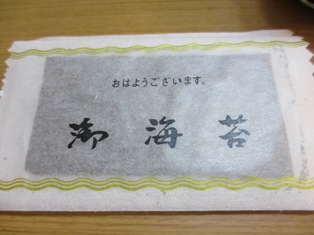 おはようございます。
御海苔